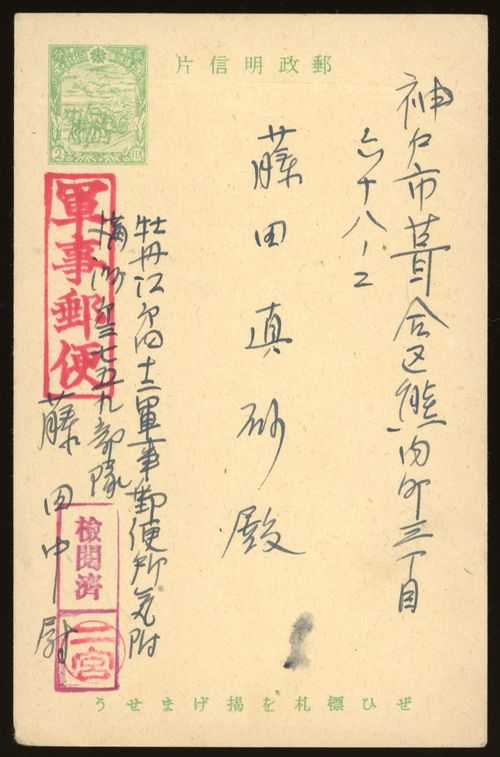 郵政明信片
神戸市葺合区熊内町三丁目
六十八ノ二
藤田真砂殿
牡丹江第四十二軍事郵便所気附
満洲第三七五九部隊
藤田中尉
軍事郵便
検閲済
二宮
ぜひ標札を掲げませう